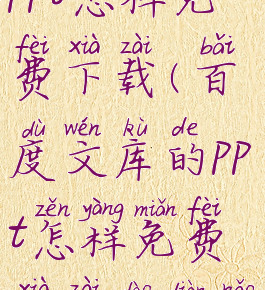 fèi xià zài bǎi
费下载(百
dù wén kù de
度文库的pp
zěn yàng miǎn fèi
t怎样免费